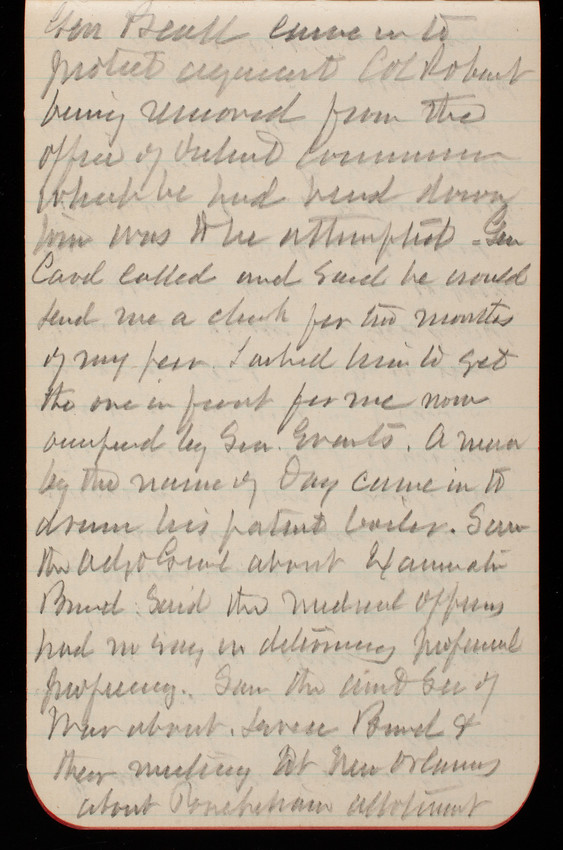 Gen Beall came in to
protest against Col Robert
being removed from the
office of
which he had
him was to be attempted - Gen
Card called and said he would
send me a check for two months
of my pew. I asked him to get
the one in front for me now
occupied by Sen. Evarts. A man
by the name of Day came in to
his patent boiler. Saw
the Adjt Genl about Examati
Board. Said the medical officers
had no say in determining professional
proficiency. Saw the Sec of
War about Levee Board &
their meeting at New Orleans
about allotment